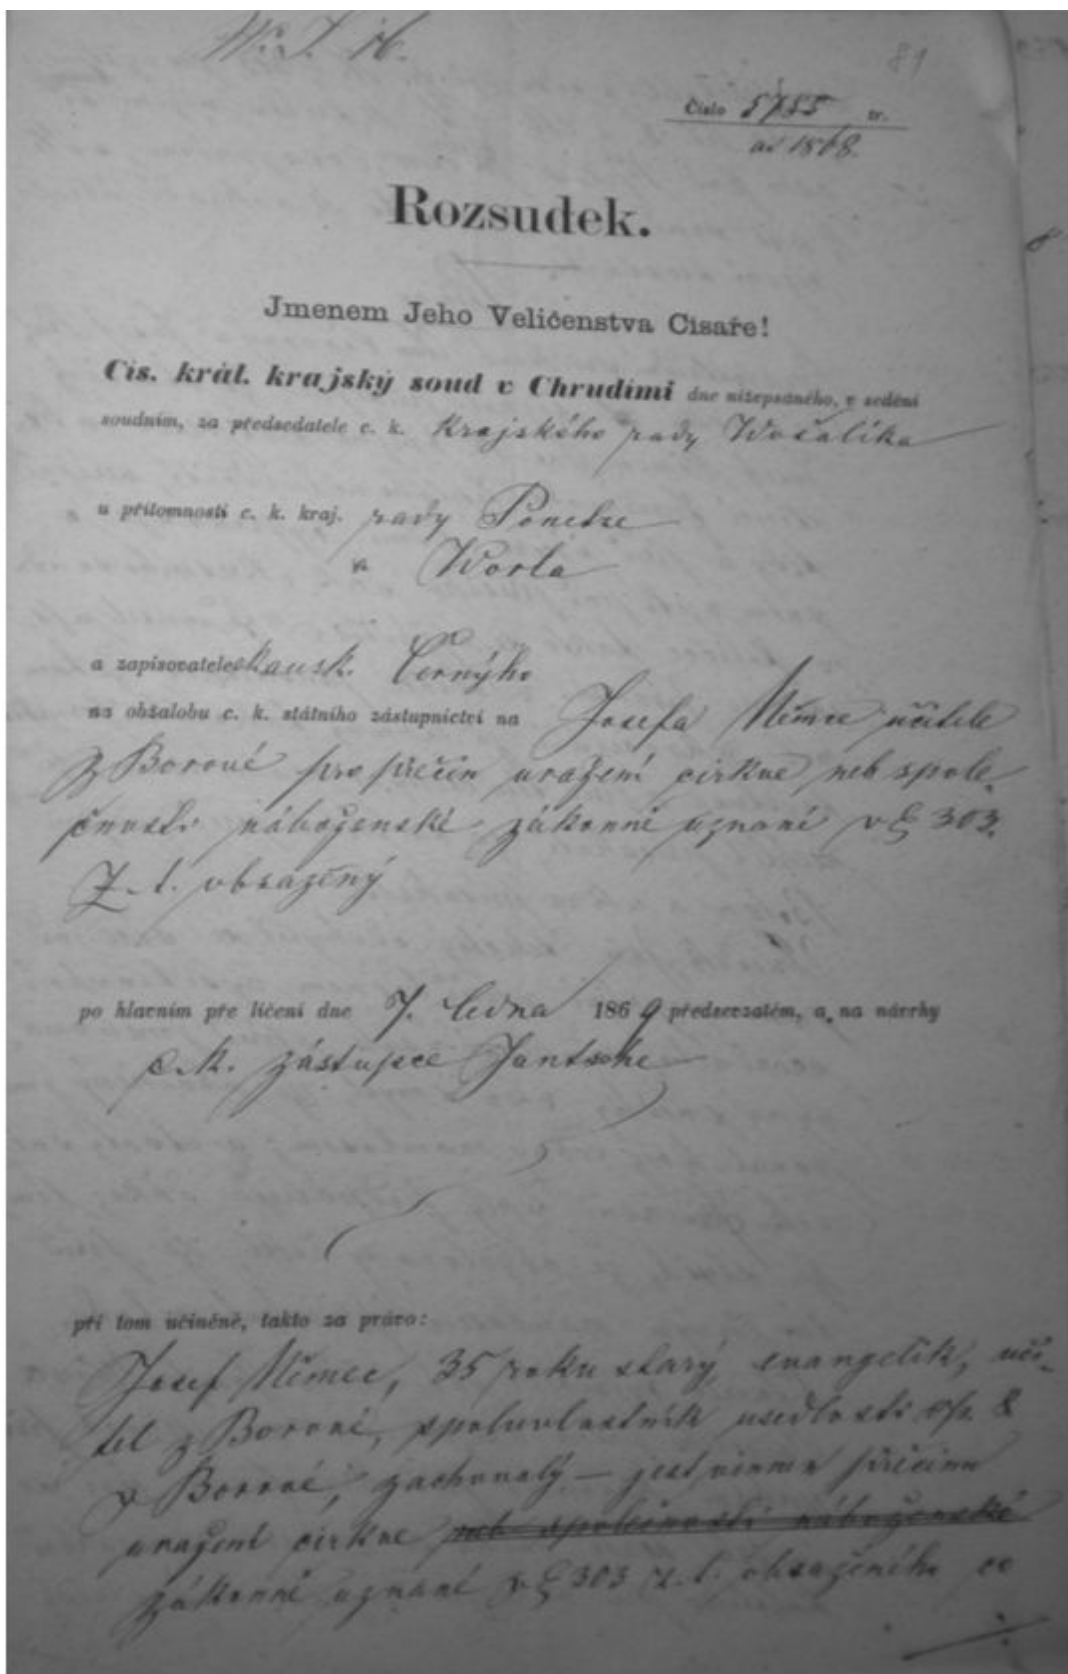 81
Číslo 5755 tr.
ai 1868.
Rozsudek.
Jmenem Jeho Veličenstva Císaře!
Cís. král. krajský soud v Chrudimi dne nížepsaného, v sedění
soudním, za předsedatele c. k. krajského rady Wošalíka
u přítomnosti c. k. kraj. rady
a Worla
a zapisovatele kausk. Černýho
na obžalobu c. k. státního zástupnictví na Josefa Němce učitele
z Borové pro přečin uražení církve neb spole-
čnosti náboženské zákonně uznané v § 303.
Z. t. obsažený
po hlavním pře líčení dne 7. ledna 1869 předsevzatém, a na návrhy
c. k. zástupce Jantsche
při tom učiněné, takto za právo:
Josef Němec, 35 roků starý evangelík, uči-
tel z Borové, spoluvlastník usedlosti čp. 8
v Borové, zachovalý — jest vinen přečinu
uražení církve neb společnosti náboženské
zákonně uznané v § 303 z. t. obsaženého